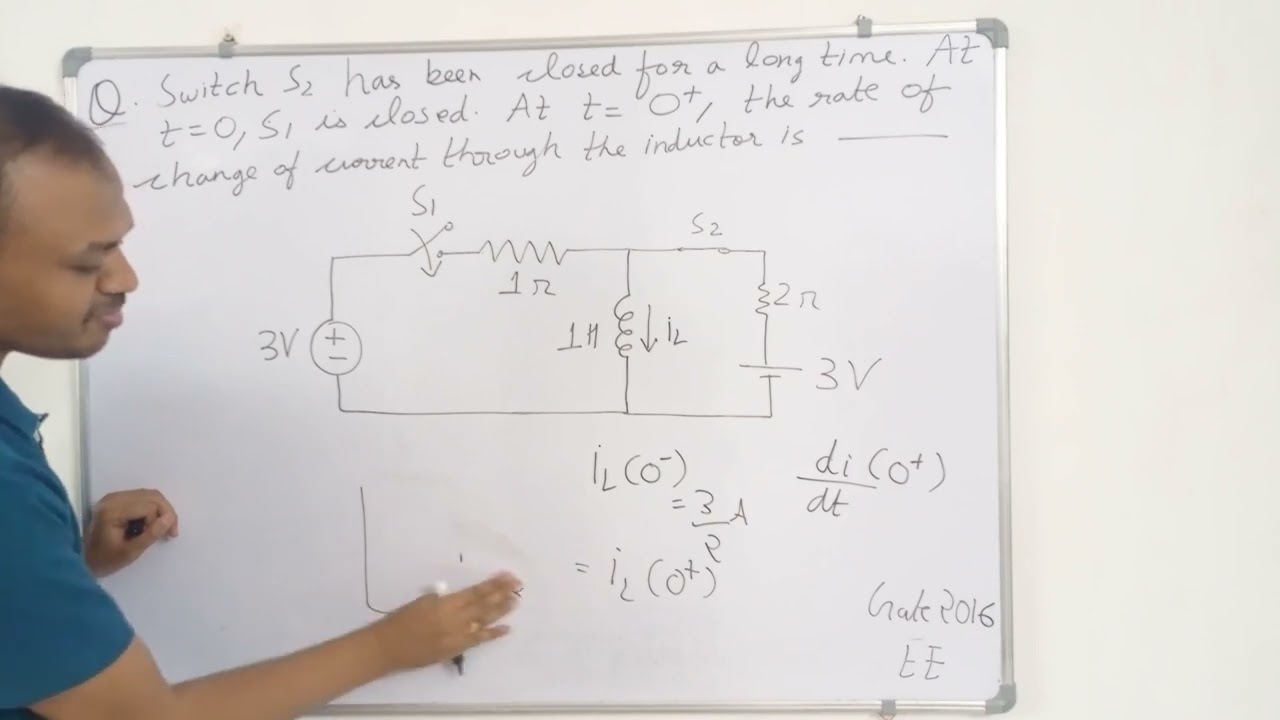 Q. Switch S2 has been closed for a long time. At
t=0, S1 is closed. At t= 0+, the rate of
change of current through the inductor is ______
S1
S2
1Ω
2Ω
3V
+
−
1H
iL
3V
iL(0-)
di(0+)
dt
= 3 A
2
= iL(0+)
Gate 2016
EE